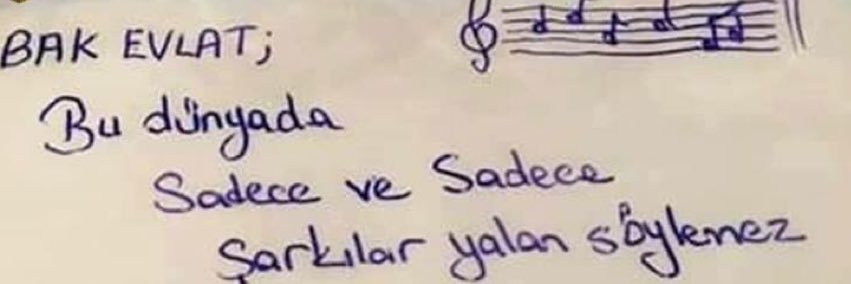 BAK EVLAT;
Bu dünyada
Sadece ve Sadece
Şarkılar yalan söylemez